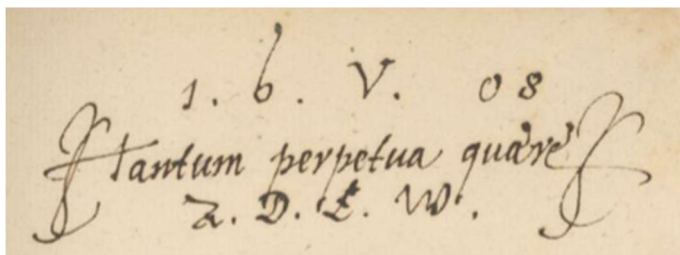 1. 6. V. 08
Tantum perpetua quære
Z. D. E. W.